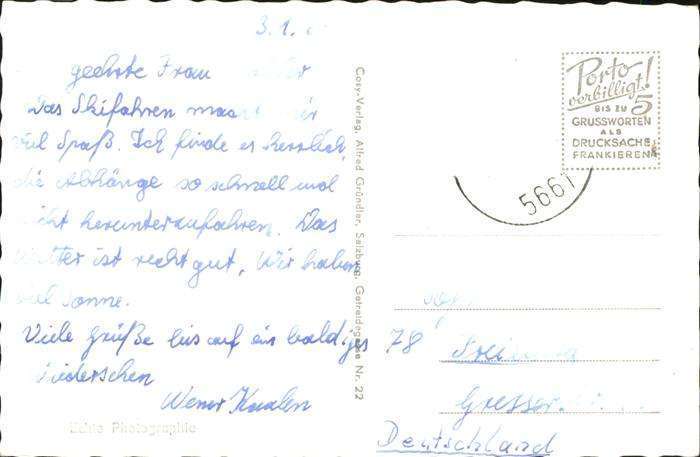 3. 1.
geehrte Frau
Das Skifahren macht mir
viel Spaß. Ich finde es herrlich,
die Abhänge so schnell und
nicht herunterzufahren. Das
Wetter ist recht gut, Wir haben
viel Sonne.
Viele Grüße bis auf ein baldiges
Wiedersehen
Werner
Echte Photographie
Cosy-Verlag, Alfred Gründler, Salzburg, Getreidegasse Nr. 22
Porto
verbilligt!
BIS ZU 5
GRUSSWORTEN
ALS
DRUCKSACHE
FRANKIEREN
5661
78
Deutschland